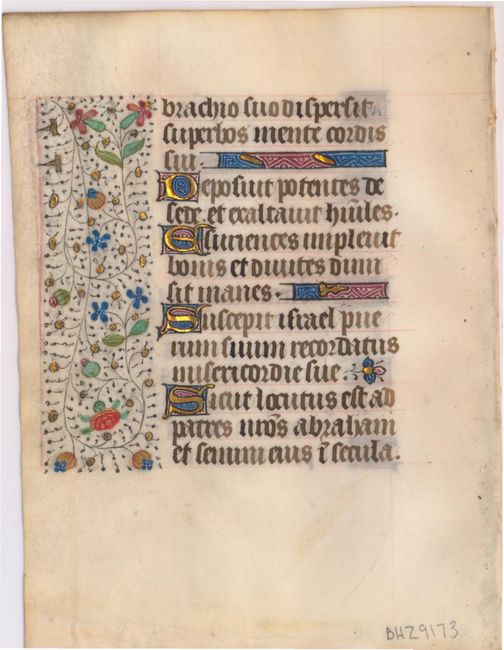 brachio suo dispersit
superbos mente cordis
sui.
Deposuit potentes de
sede et exaltauit hũiles.
Esurientes impleuit
bonis et diuites dimi
sit inanes.
Suscepit israel pue
rum suum recordatus
misericordie sue.
Sicut locutus est ad
patres nr̃os abraham
et semini eius ĩ secula.
BHZ9173